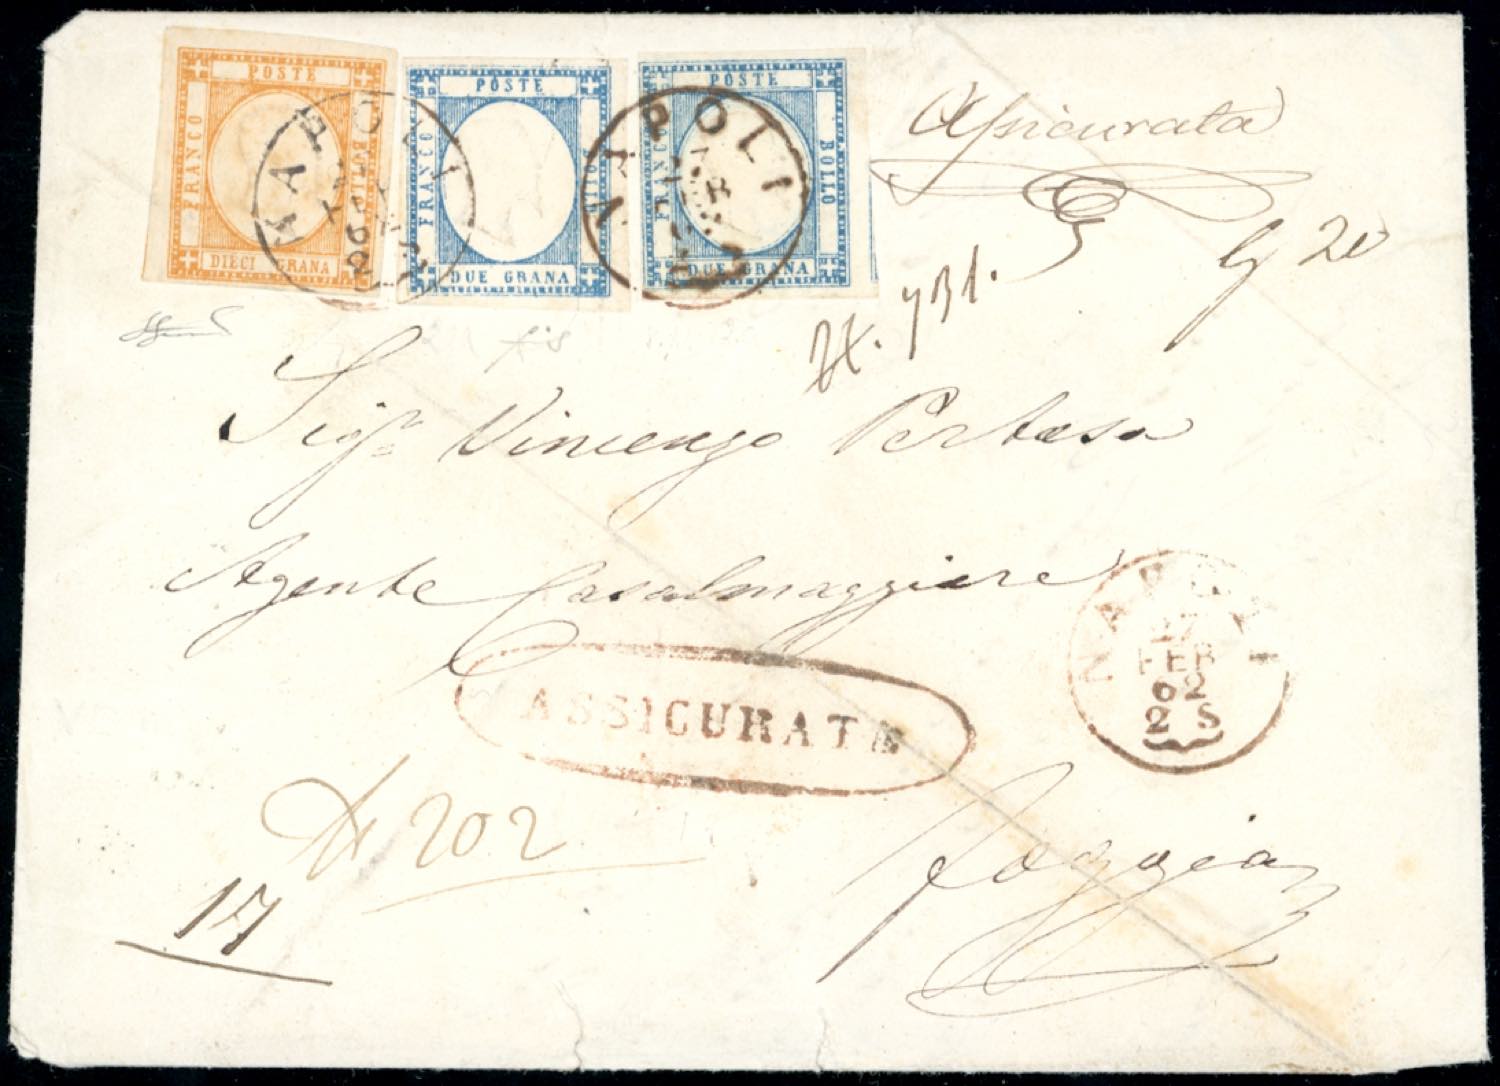 POSTE
FRANCO
BOLLO
DIECI GRANA
POSTE
FRANCO
BOLLO
DUE GRANA
POSTE
FRANCO
BOLLO
DUE GRANA
NAPOLI
NAPOLI
Assicurata
20
Sigr. Vincenzo Pertosa
Agente Casalmaggiore
NAPOLI
27
FEB
62
2 S
ASSICURATE
202
Foggia
17